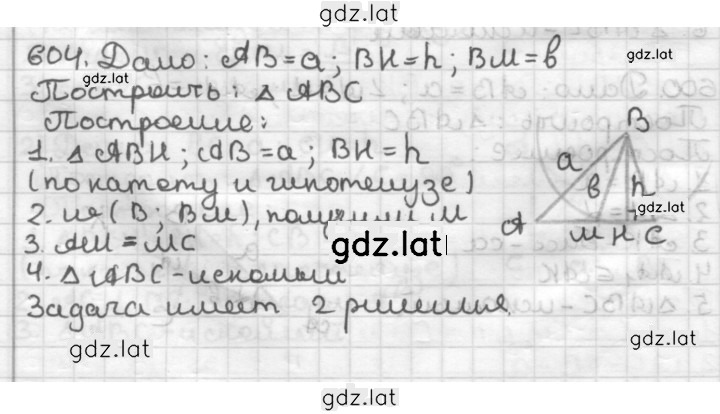 gdz.lat
604. Дано: AB = a; BH = h; BM = b
gdz.lat
gdz.lat
Построить: △ ABC
Построение:
1. △ ABH; AB = a; BH = h
(по катету и гипотенузе)
2. (B; BM), получим M
3. AM = MC
4. △ ABC - искомый
Задача имеет 2 решения.
B
a
b
h
gdz.lat
A
M H C
gdz.lat
gdz.lat
gdz.lat
gdz.lat